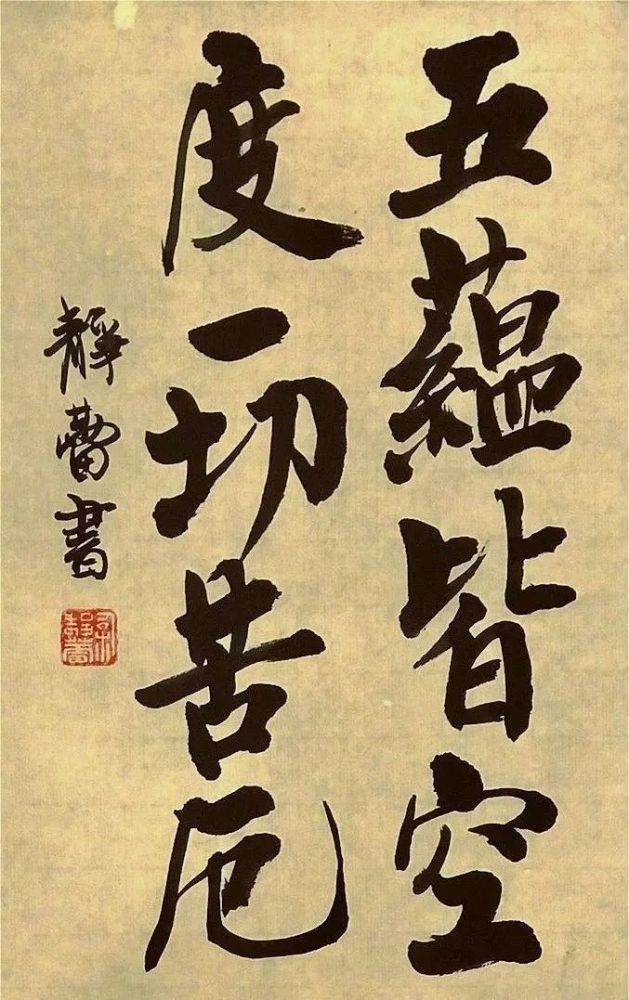 五蘊皆空
度一切苦厄
靜蕾書